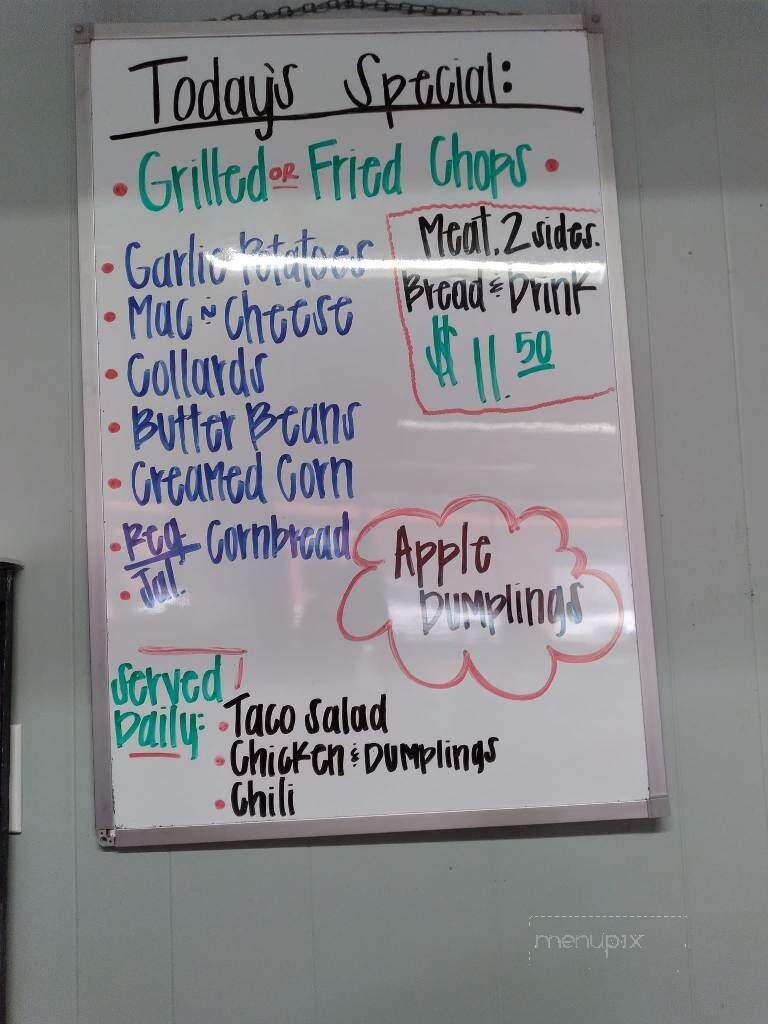 Today's Special:
• Grilled OR Fried Chops •
Meat, 2 sides.
Bread & Drink
$11.50
• Garlic Potatoes
• Mac ~ Cheese
• Collards
• Butter Beans
• Creamed Corn
• Reg Cornbread
• Jal.
Apple
Dumplings
Served
Daily:
• Taco Salad
• Chicken & Dumplings
• Chili
menupix